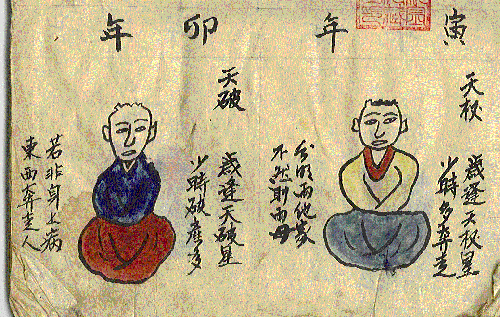 寅年
天权
歲逢天权星
少時多奔走
分明兩他家
不然則兩母
卯年
天破
歲逢天破星
少時破產多
若非身上病
東西奔走人